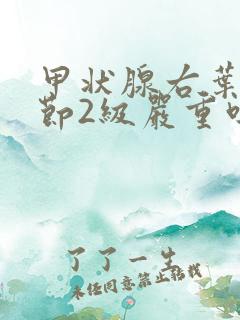 甲状腺右葉
節2級嚴重
了了一生
未经同意禁止转载